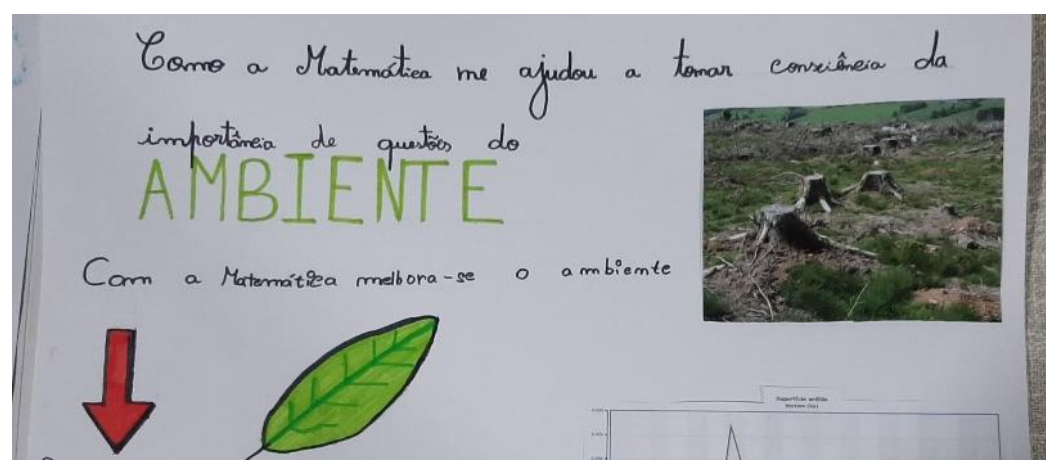 Como a Matemática me ajudou a tomar consciência da
importância de questões do
AMBIENTE
Com a Matemática melhora-se o ambiente
Superfície ardida